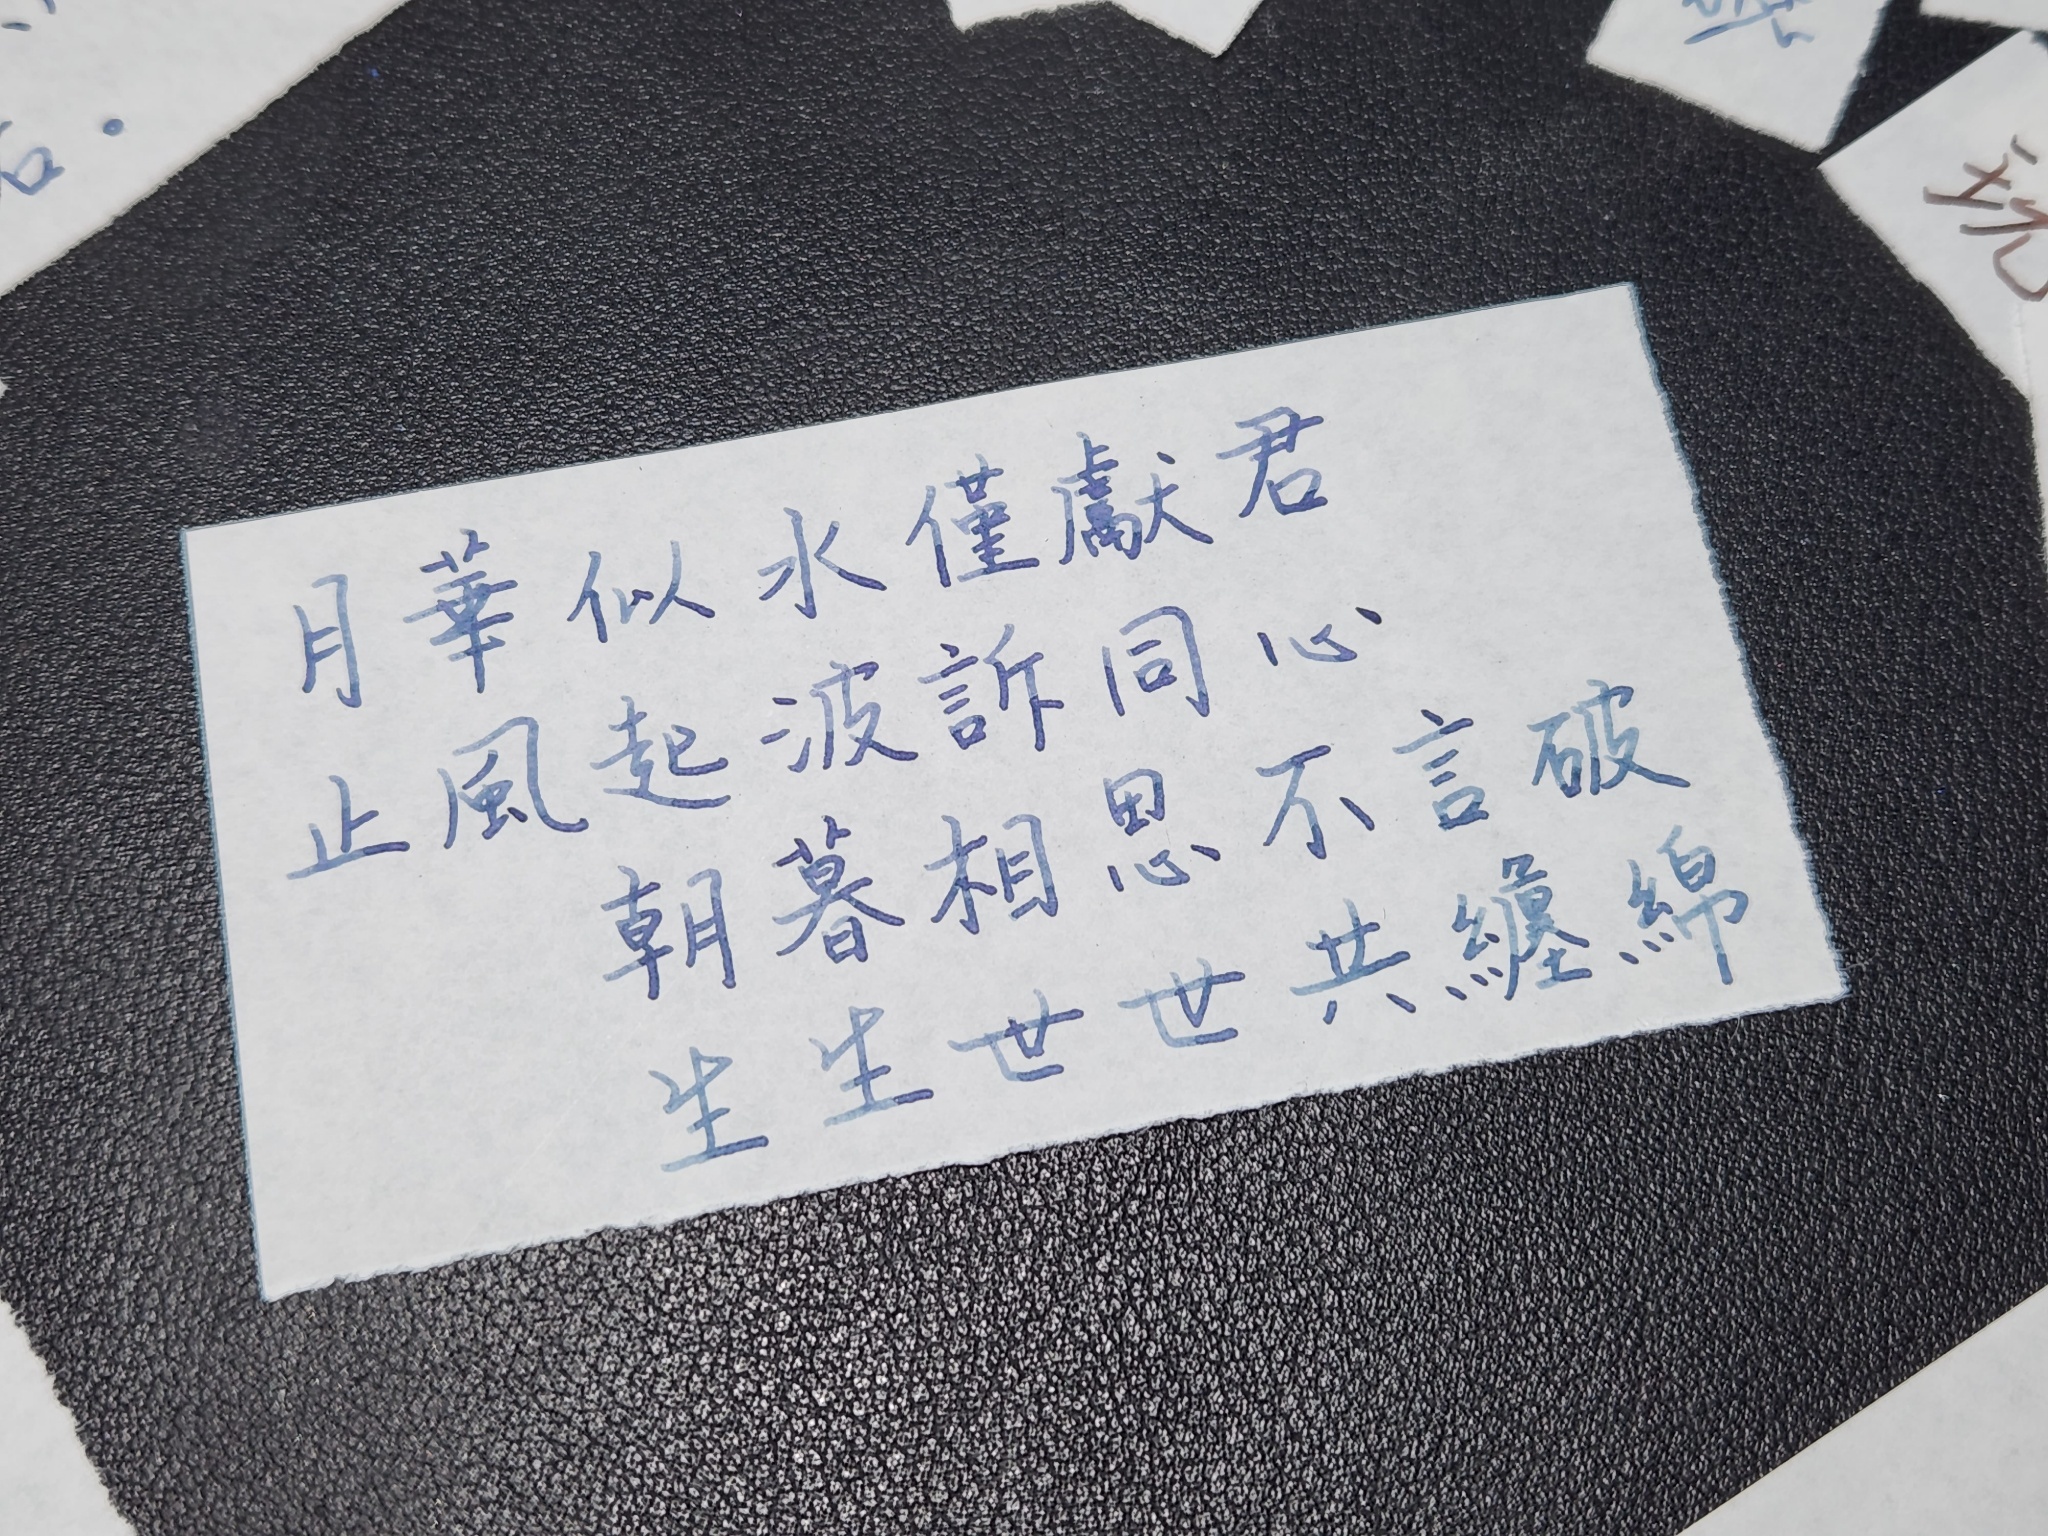 月華似水僅獻君
止風起波訴同心
朝暮相思不言破
生生世世共纏綿